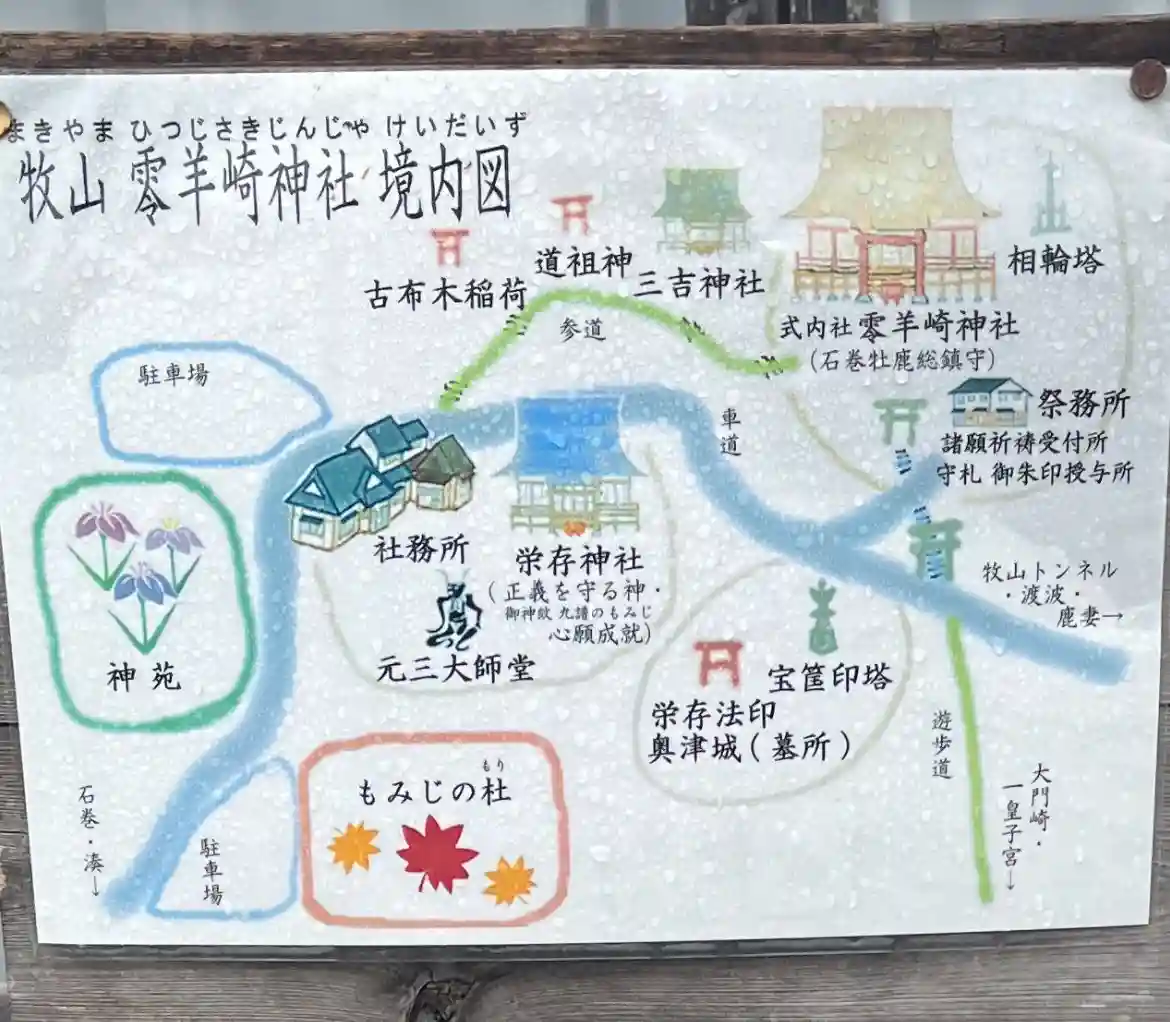 まきやま ひつじさきじんじゃ けいだいず
牧山 零羊崎神社 境内図
古布木稲荷
道祖神
三吉神社
相輪塔
参道
式内社 零羊崎神社
(石巻牡鹿総鎮守)
駐車場
車道
祭務所
諸願祈祷受付所
守札 御朱印授与所
社務所
栄存神社
(正義を守る神・
御神紋 九譜のもみじ
心願成就)
元三大師堂
牧山トンネル
・渡波・
鹿妻→
神苑
宝筐印塔
栄存法印
奥津城(墓所)
遊歩道
大門崎・
一皇子宮→
もり
もみじの杜
石巻・湊→
駐車場